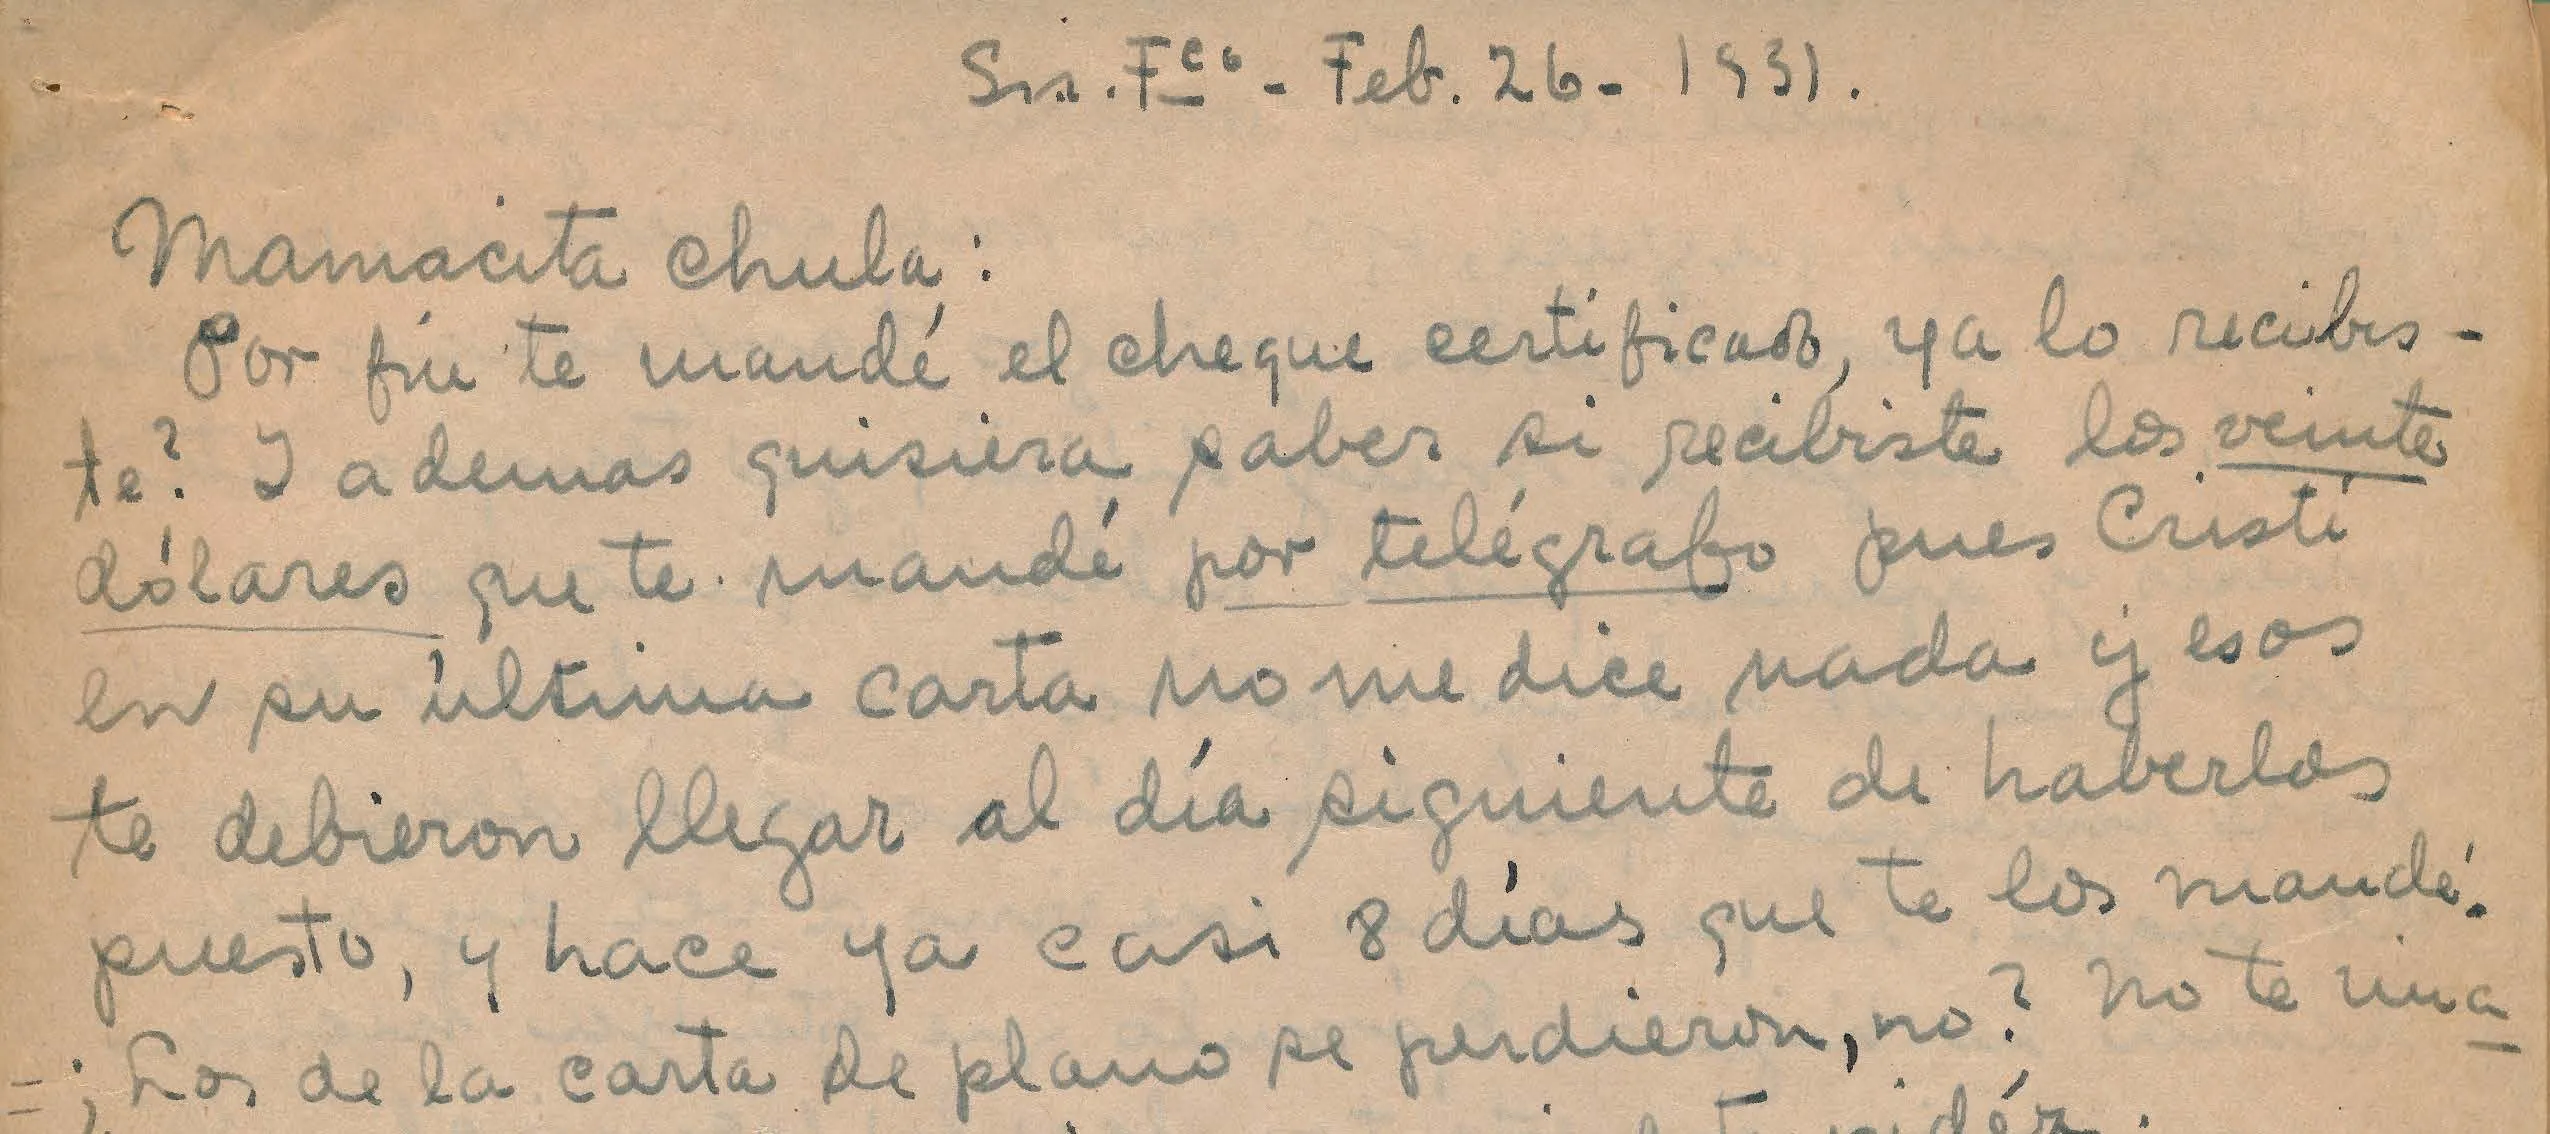 Sn. Fco - Feb. 26 - 1931.
Mamacita chula:
Por fin te mandé el cheque certificado, ya lo recibis-
te? I ademas quisiera saber si recibiste los veinte
dólares que te mandé por telégrafo pues Cristi
en su última carta no me dice nada y esos
te debieron llegar al día siguiente de haberlos
puesto, y hace ya casi 8 días que te los mandé.
=¿Los de la carta de plano se perdieron, no? No te